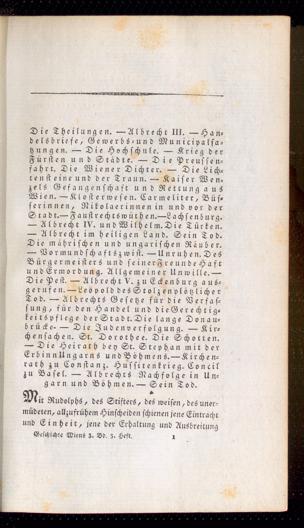 Die Theilungen. — Albrecht III. — Han-
delsbriefe, Gewerbs- und Municipalsa-
tzungen. — Die Hochschule. — Krieg der
Fürsten und Städte. — Die Preussen-
fahrt. Die Wiener Dichter. — Die Lich-
tensteiner und der Traun. — Kaiser Wen-
zels Gefangenschaft und Rettung aus
Wien. — Klosterwesen. Carmeliter, Büs-
serinnen, Nikolaerinnen in und vor der
Stadt. — Faustrechtswüthen. — Lachsenburg.
— Albrecht IV. und Wilhelm. Die Türken.
— Albrecht im heiligen Land. Sein Tod.
Die mährischen und ungarischen Räuber.
— Vormundschaftszwist. — Unruhen. Des
Bürgermeisters und seiner Freunde Haft
und Ermordung. Allgemeiner Unwille. —
Die Pest. — Albrecht V. zu Eckenburg aus-
gerufen. — Leopold des Stolzen plötzlicher
Tod. — Albrechts Gesetze für die Verfas-
sung, für den Handel und die Gerechtig-
keitspflege der Stadt. Die lange Donau-
brücke. — Die Judenverfolgung. — Kir-
chensachen. St. Dorothee. Die Schotten.
— Die Heirath bey St. Stephan mit der
Erbinn Ungarns und Böhmens. — Kirchen-
rath zu Constanz. Hussitenkrieg. Concil
zu Basel. — Albrechts Nachfolge in Un-
garn und Böhmen. — Sein Tod.
Mit Rudolphs, des Stifters, des weisen, des uner-
müdeten, allzufrühem Hinscheiden schienen jene Eintracht
und Einheit, jene der Erhaltung und Ausbreitung
Geschichte Wiens 3. Bd. 3. Heft. 1